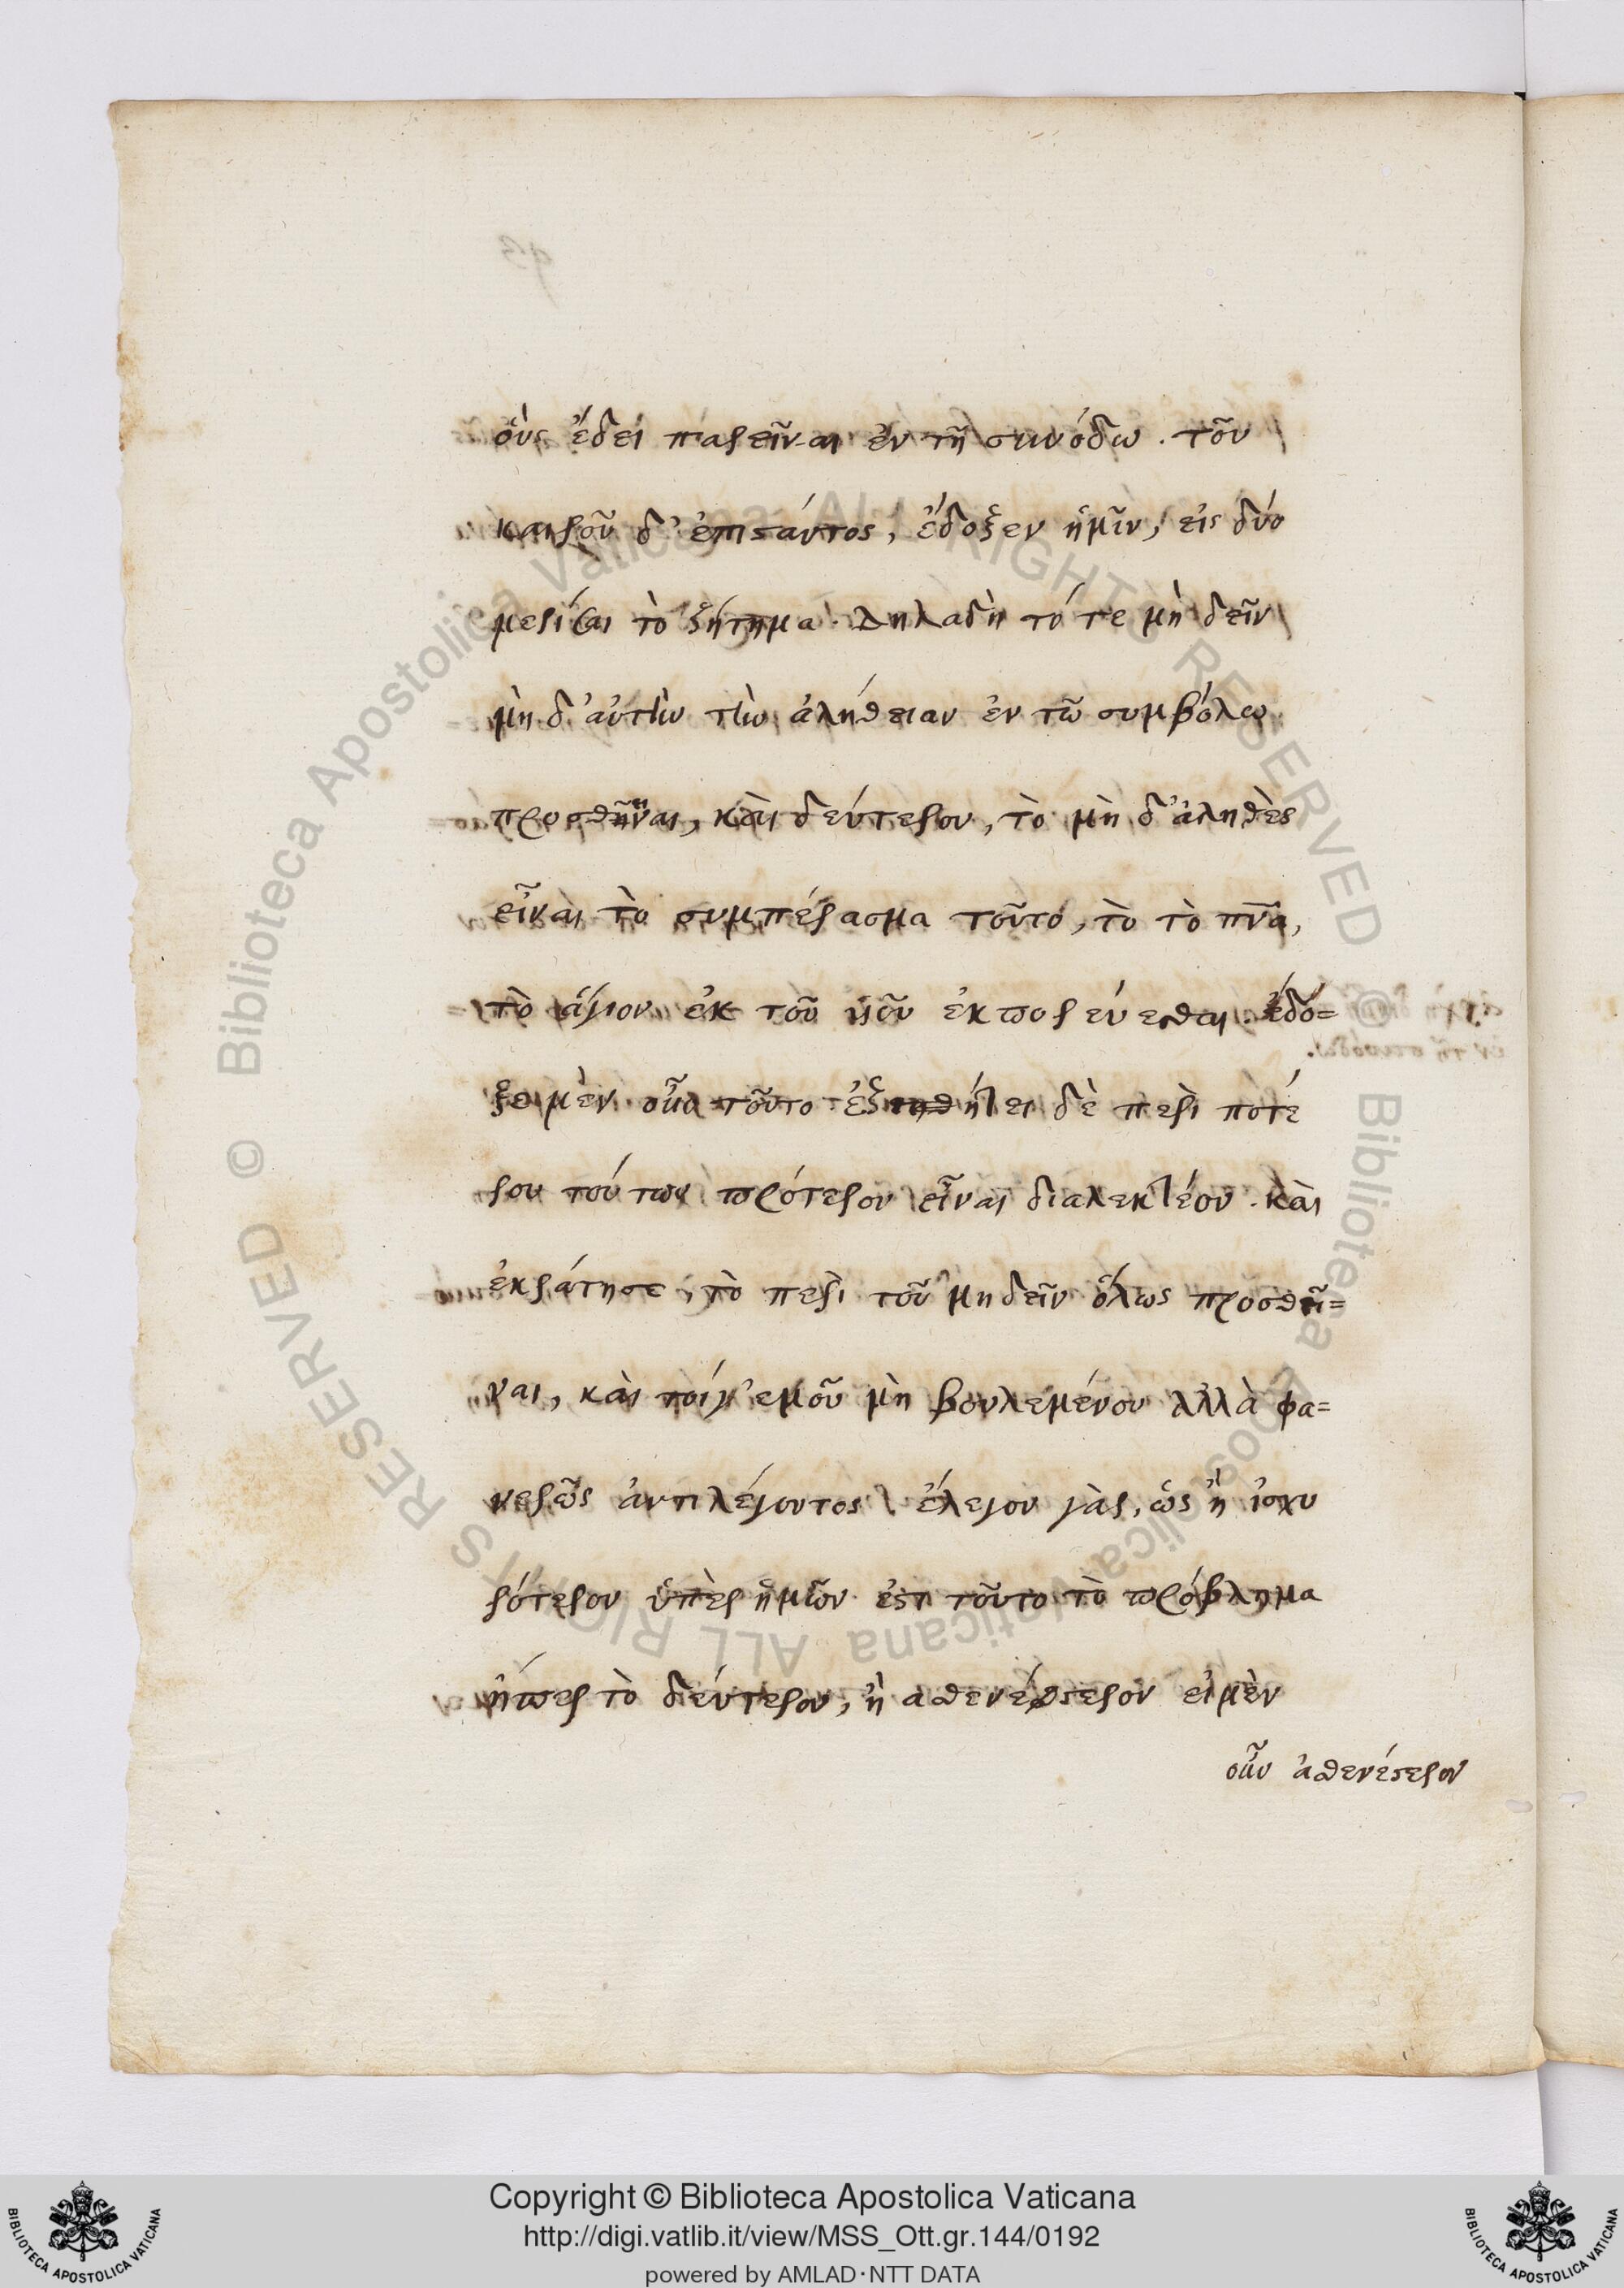 οὓς ἔδει παρεῖναι ἐν τῇ συνόδω. τοῦ
καιροῦ δ' ἐπιστάντος, ἔδοξεν ἡμῖν, εἰς δύο
μερίσαι τὸ ζήτημα. Δηλαδὴ τό τε μὴ δεῖν
μὴ δ' αὐτὴν τὴν ἀλήθειαν ἐν τῶ συμβόλω
προσθεῖναι, καὶ δεύτερον, τὸ μὴ δ' ἀληθὲς
εἶναι τὸ συμπέρασμα τοῦτο, τὸ τὸ πνᾶ,
τὸ ἅγιον ἐκ τοῦ ὑοῦ ἐκπορεύεσθαι. ἐδό=
ξε μὲν οὖν τοῦτο ἐζητήθη δὲ περὶ ποτέ
ρου τούτων πρότερον εἶναι διαλεκτέον. καὶ
ἐκράτησε, τὸ περὶ τοῦ μὴ δεῖν ὅλως προσθεῖ=
ναι, καὶ τοίγ' ἐμοῦ μὴ βουλεμένου ἀλλὰ φα=
νερῶς ἀντιλέγοντος ἔλεγον γὰρ, ὡς ἢ ἰσχυ
ρότερον ὑπὲρ ἡμῶν ἐστι τοῦτο τὸ πρόβλημα
ἤπερ τὸ δεύτερον, ἢ ἀσθενέστερον εἰ μὲν
οὖν ἀσθενέστερον
Copyright © Biblioteca Apostolica Vaticana
http://digi.vatlib.it/view/MSS_Ott.gr.144/0192
powered by AMLAD·NTT DATA
BIBLIOTECA APOSTOLICA VATICANA
BIBLIOTECA APOSTOLICA VATICANA
© Biblioteca Apostolica Vaticana ALL RIGHTS RESERVED
© Biblioteca Apostolica Vaticana ALL RIGHTS RESERVED